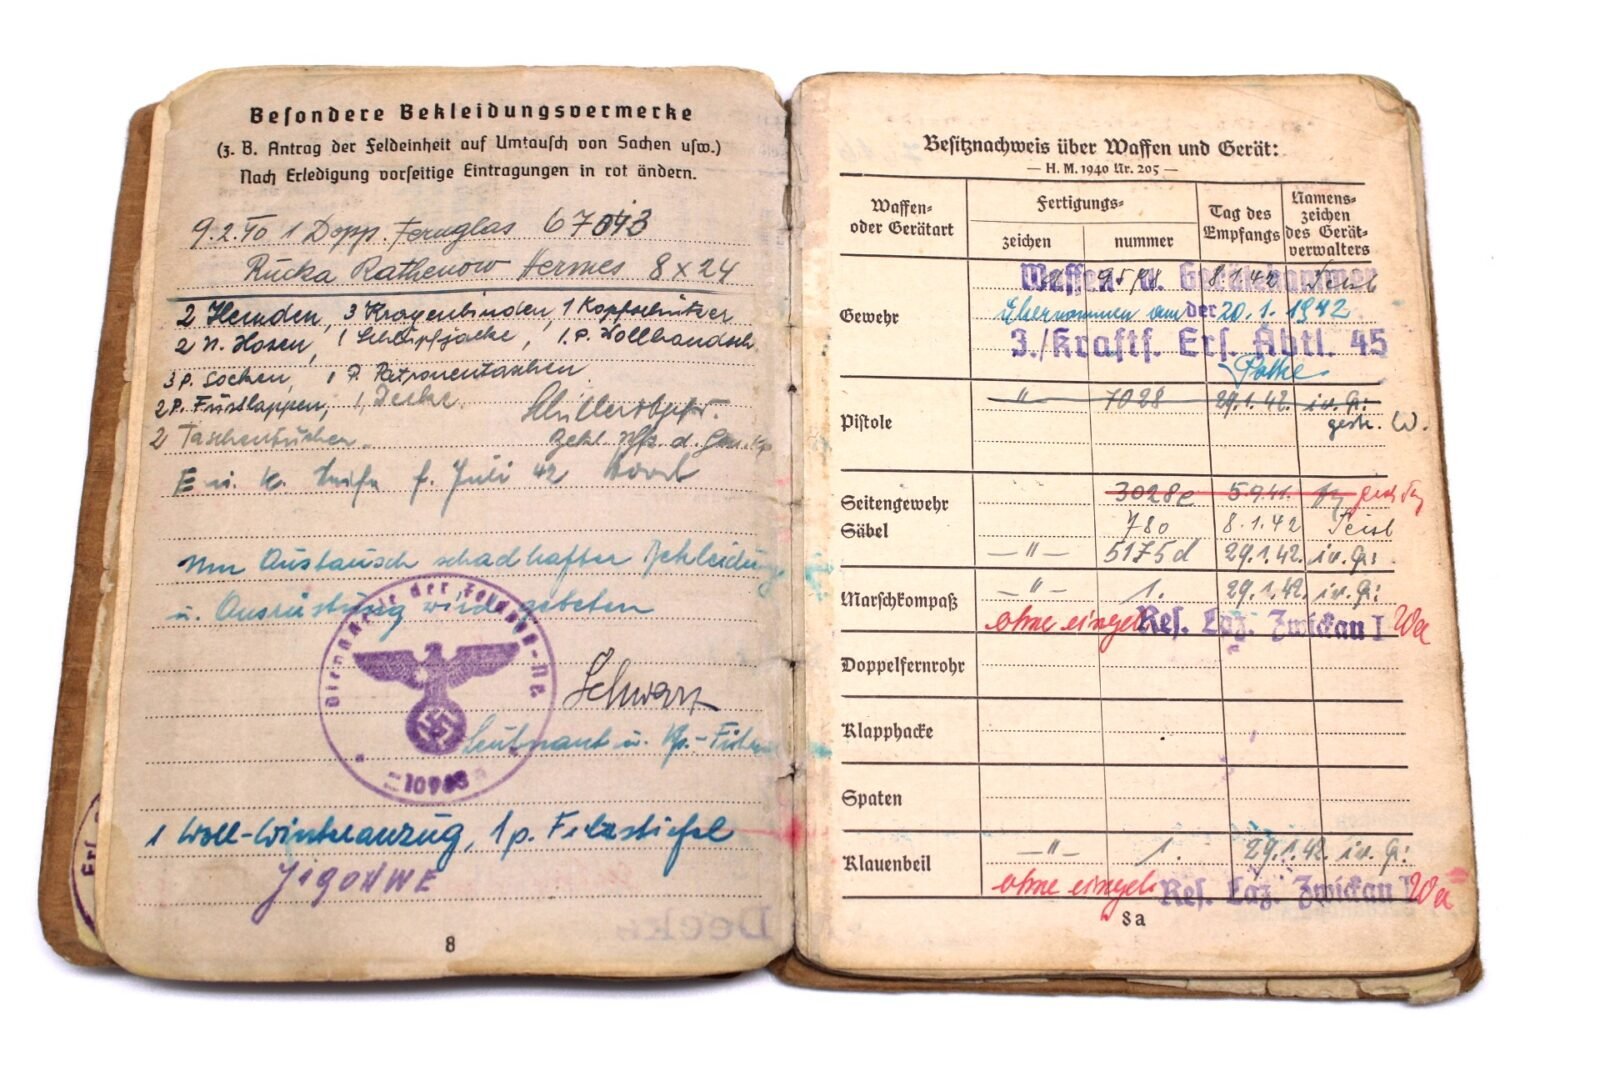 Besondere Bekleidungsvermerke
(z. B. Antrag der Feldeinheit auf Umtausch von Sachen usw.)
Nach Erledigung vorseitige Eintragungen in rot ändern.
9.2.40 1 Dopp. Fernglas 67043
Rucka Rathenow Hermes 8x24
2 Hemden, 3 Kragenbinden, 1 Kopfschützer
2 U. Hosen, 1 Schlupfjacke, 1 P. Wollhandsch.
3 P. Socken, 1 P. Patronentaschen
2 P. Fußlappen, 1 Decke
2 Taschentücher.
E u. K. Seife f. Juli 42
Um Austausch schadhafter Bekleidung
u. Ausrüstung wird gebeten
Dienststelle der Feldpost-Nr.
Schwarz
Leutnant u. Kp.-
1 Woll-Winteranzug, 1 p. Filzstiefel
8
Besitznachweis über Waffen und Gerät:
— H. M. 1940 Nr. 205 —
Waffen- oder Gerätart
Fertigungs-
zeichen
nummer
Tag des Empfangs
Namens-zeichen des Gerät-verwalters
Waffen- u. Gerätekammer
8.1.42
Gewehr
Übernommen am 20.1.1942
der
3./Kraftf. Ers. Abtl. 45
Pistole — " — 7028 29.1.42. i.V.
gestr. W.
Seitengewehr 3028e 5.9.41.
Säbel 780 8.1.42
— " — 5175d 29.1.42. i.V.
Marschkompaß — " — 1. 29.1.42. i.V.
ohne eingel. Res. Laz. Zwickau I
Doppelfernrohr
Klapphacke
Spaten
Klauenbeil — " — 1. 29.1.42. i.V.
ohne eingel. Res. Laz. Zwickau I
8a